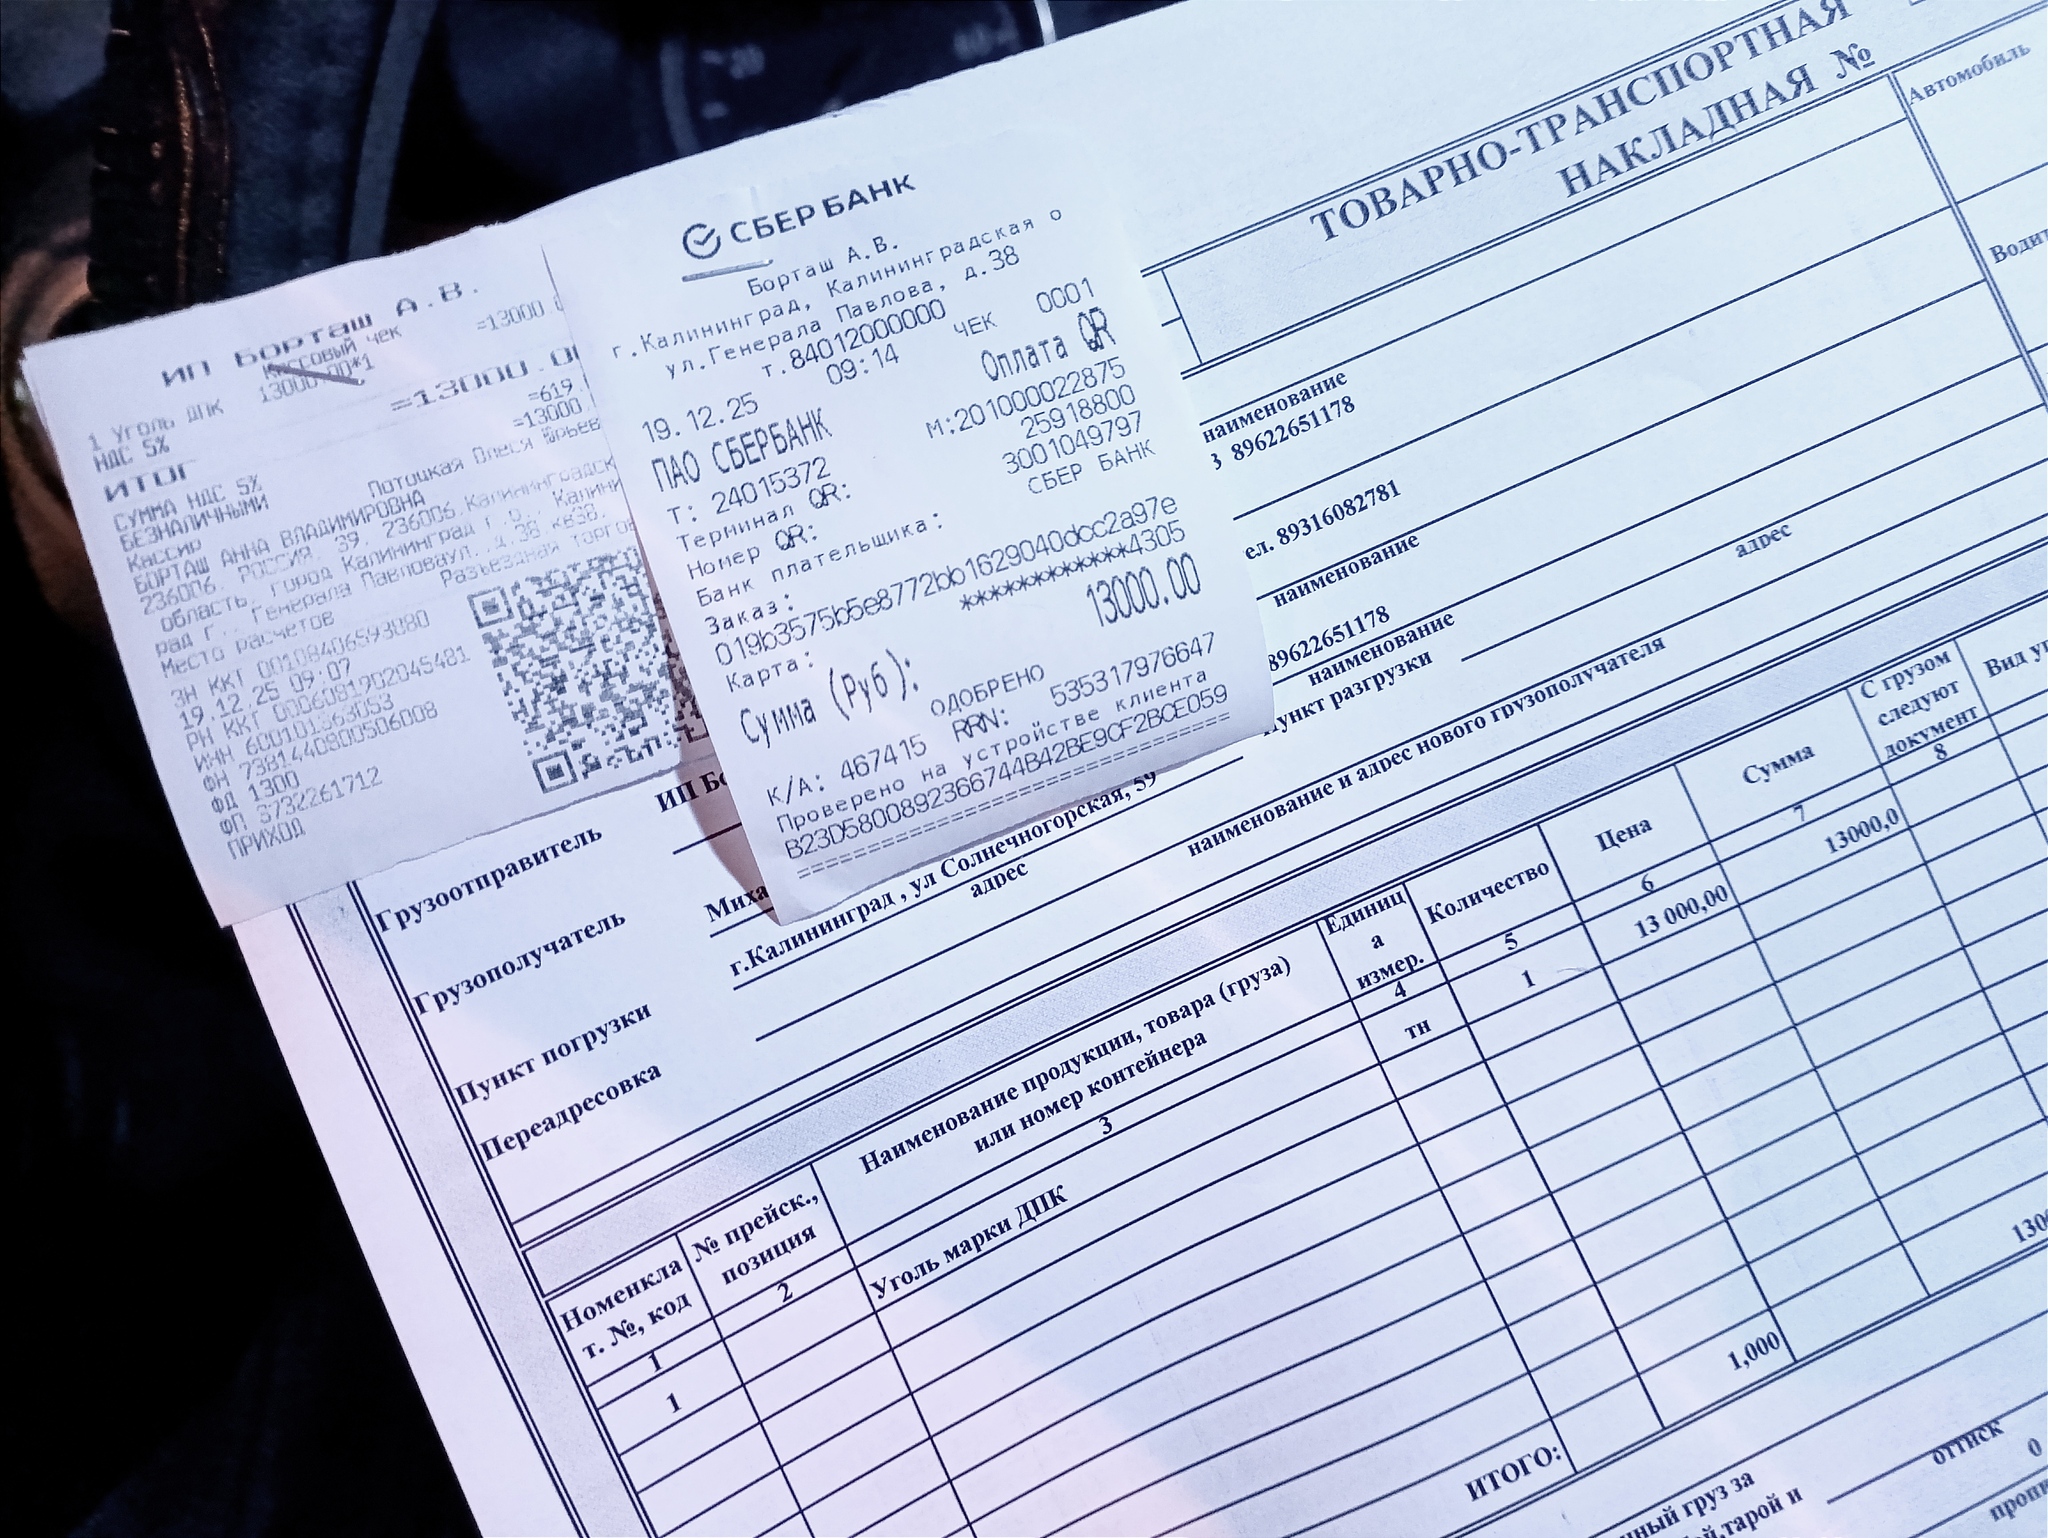 ИП Борташ А.В.
Кассовый чек
1 Уголь ДПК 13000.00*1 =13000.
НДС 5%
ИТОГ =13000.0
СУММА НДС 5% =619.
БЕЗНАЛИЧНЫМИ =13000.
Кассир Потоцкая Олеся Юрьев
БОРТАШ АННА ВЛАДИМИРОВНА
236006, РОССИЯ, 39, 236006,Калининградск
область, город Калининград г.о., Калини
рад г., Генерала Павловаул., д.38, кв38,
Место расчетов Разъездная торгов
ЗН ККТ 00108406593080
19.12.25 09:07
РН ККТ 0006081902045481
ИНН 600101563053
ФН 7381440800506008
ФД 1300
ФП 3732261712
ПРИХОД
СБЕР БАНК
Борташ А.В.
г.Калининград, Калининградская о
ул.Генерала Павлова, д.38
т.84012000000
19.12.25 09:14 ЧЕК 0001
ПАО СБЕРБАНК Оплата QR
Т: 24015372 М:201000022875
Терминал QR: 25918800
Номер QR: 3001049797
Банк плательщика: СБЕР БАНК
Заказ:
019b3575b5e8772bb1629040dcc2a97e
Карта: ************4305
Сумма (Руб): 13000.00
ОДОБРЕНО
К/А: 467415 RRN: 535317976647
Проверено на устройстве клиента
B23D5800892366744B42BE9CF2BCE059
================================
ТОВАРНО-ТРАНСПОРТНАЯ
НАКЛАДНАЯ №
Автомобиль
Водит
наименование
3 89622651178
ел. 89316082781
наименование
адрес
Грузоотправитель ИП Бо
89622651178
наименование
Грузополучатель Миха
Пункт разгрузки
Пункт погрузки г.Калининград , ул Солнечногорская, 59
адрес
Переадресовка
наименование и адрес нового грузополучателя
Номенкла т. №, код
№ прейск., позиция
Наименование продукции, товара (груза) или номер контейнера
Единиц а измер.
Количество
Цена
Сумма
С грузом следуют документ
Вид уп
1 2 3 4 5 6 7 8
1 Уголь марки ДПК тн 1 13 000,00 13000,0
ИТОГО: 1,000 1300
оттиск
0
нный груз за
й,тарой и
пропи